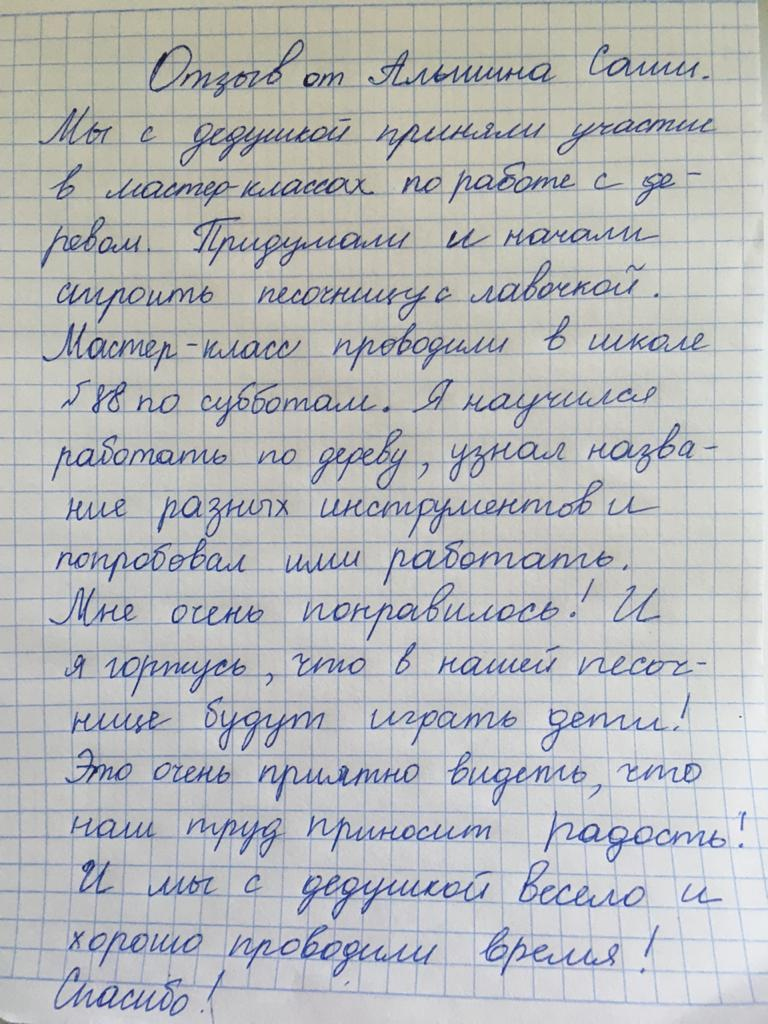 Отзыв от Алышина Саши.
Мы с дедушкой приняли участие
в мастер-классах по работе с де-
ревом. Придумали и начали
строить песочницу с лавочкой.
Мастер-класс проводили в школе
№88 по субботам. Я научился
работать по дереву, узнал назва-
ние разных инструментов и
попробовал ими работать.
Мне очень понравилось! И
я горжусь, что в нашей песоч-
нице будут играть дети!
Это очень приятно видеть, что
наш труд приносит радость!
И мы с дедушкой весело и
хорошо проводили время!
Спасибо!